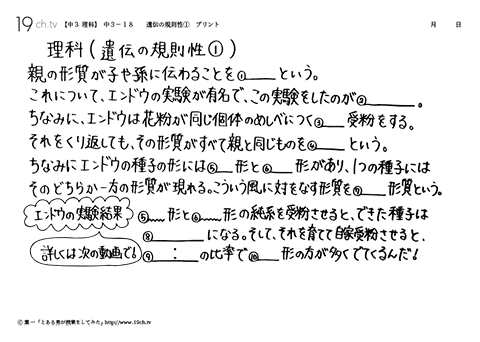 19ch.tv 【中3 理科】 中3-18 遺伝の規則性① プリント 月 日
理科(遺伝の規則性①)
親の形質が子や孫に伝わることを①____という。
これについて、エンドウの実験が有名で、この実験をしたのが②____。
ちなみに、エンドウは花粉が同じ個体のめしべにつく③____受粉をする。
それをくり返しても、その形質がすべて親と同じものを④____という。
ちなみにエンドウの種子の形には⑤____形と⑥____形があり、1つの種子には
そのどちらか一方の形質が現れる。こういう風に対をなす形質を⑦____形質という。
エンドウの実験結果
⑤____形と⑥____形の純系を受粉させると、できた種子は
⑧____になる。そして、それを育てて自家受粉させると、
詳しくは次の動画で!
⑨__:__の比率で⑩____形の方が多くでてくるんだ!
© 葉一「とある男が授業をしてみた」http://www.19ch.tv